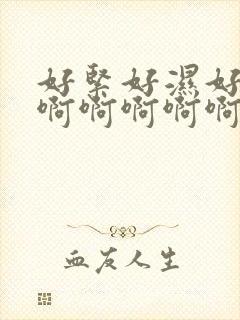 好緊好濕好
啊啊啊啊啊
血友人生